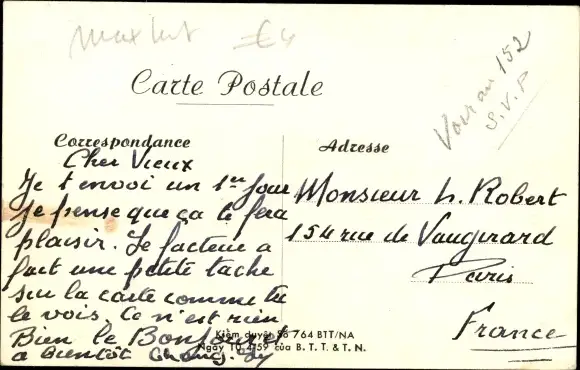 Max lut € 4
Carte Postale
Voir au 152
S.V.P
Correspondance
Cher Vieux
Je t envoi un 1er jour
je pense que ça te fera
plaisir. Le facteur a
fait une petite tache
sur la carte comme tu
le vois. Ce n'est rien
Bien le Bonjour
a bientôt
Adresse
Monsieur L. Robert
154 rue de Vaugirard
Paris
France
Kiểm duyệt Số 764 BTT/NA
Ngày 10.4.59 của B. T. T. & T. N.